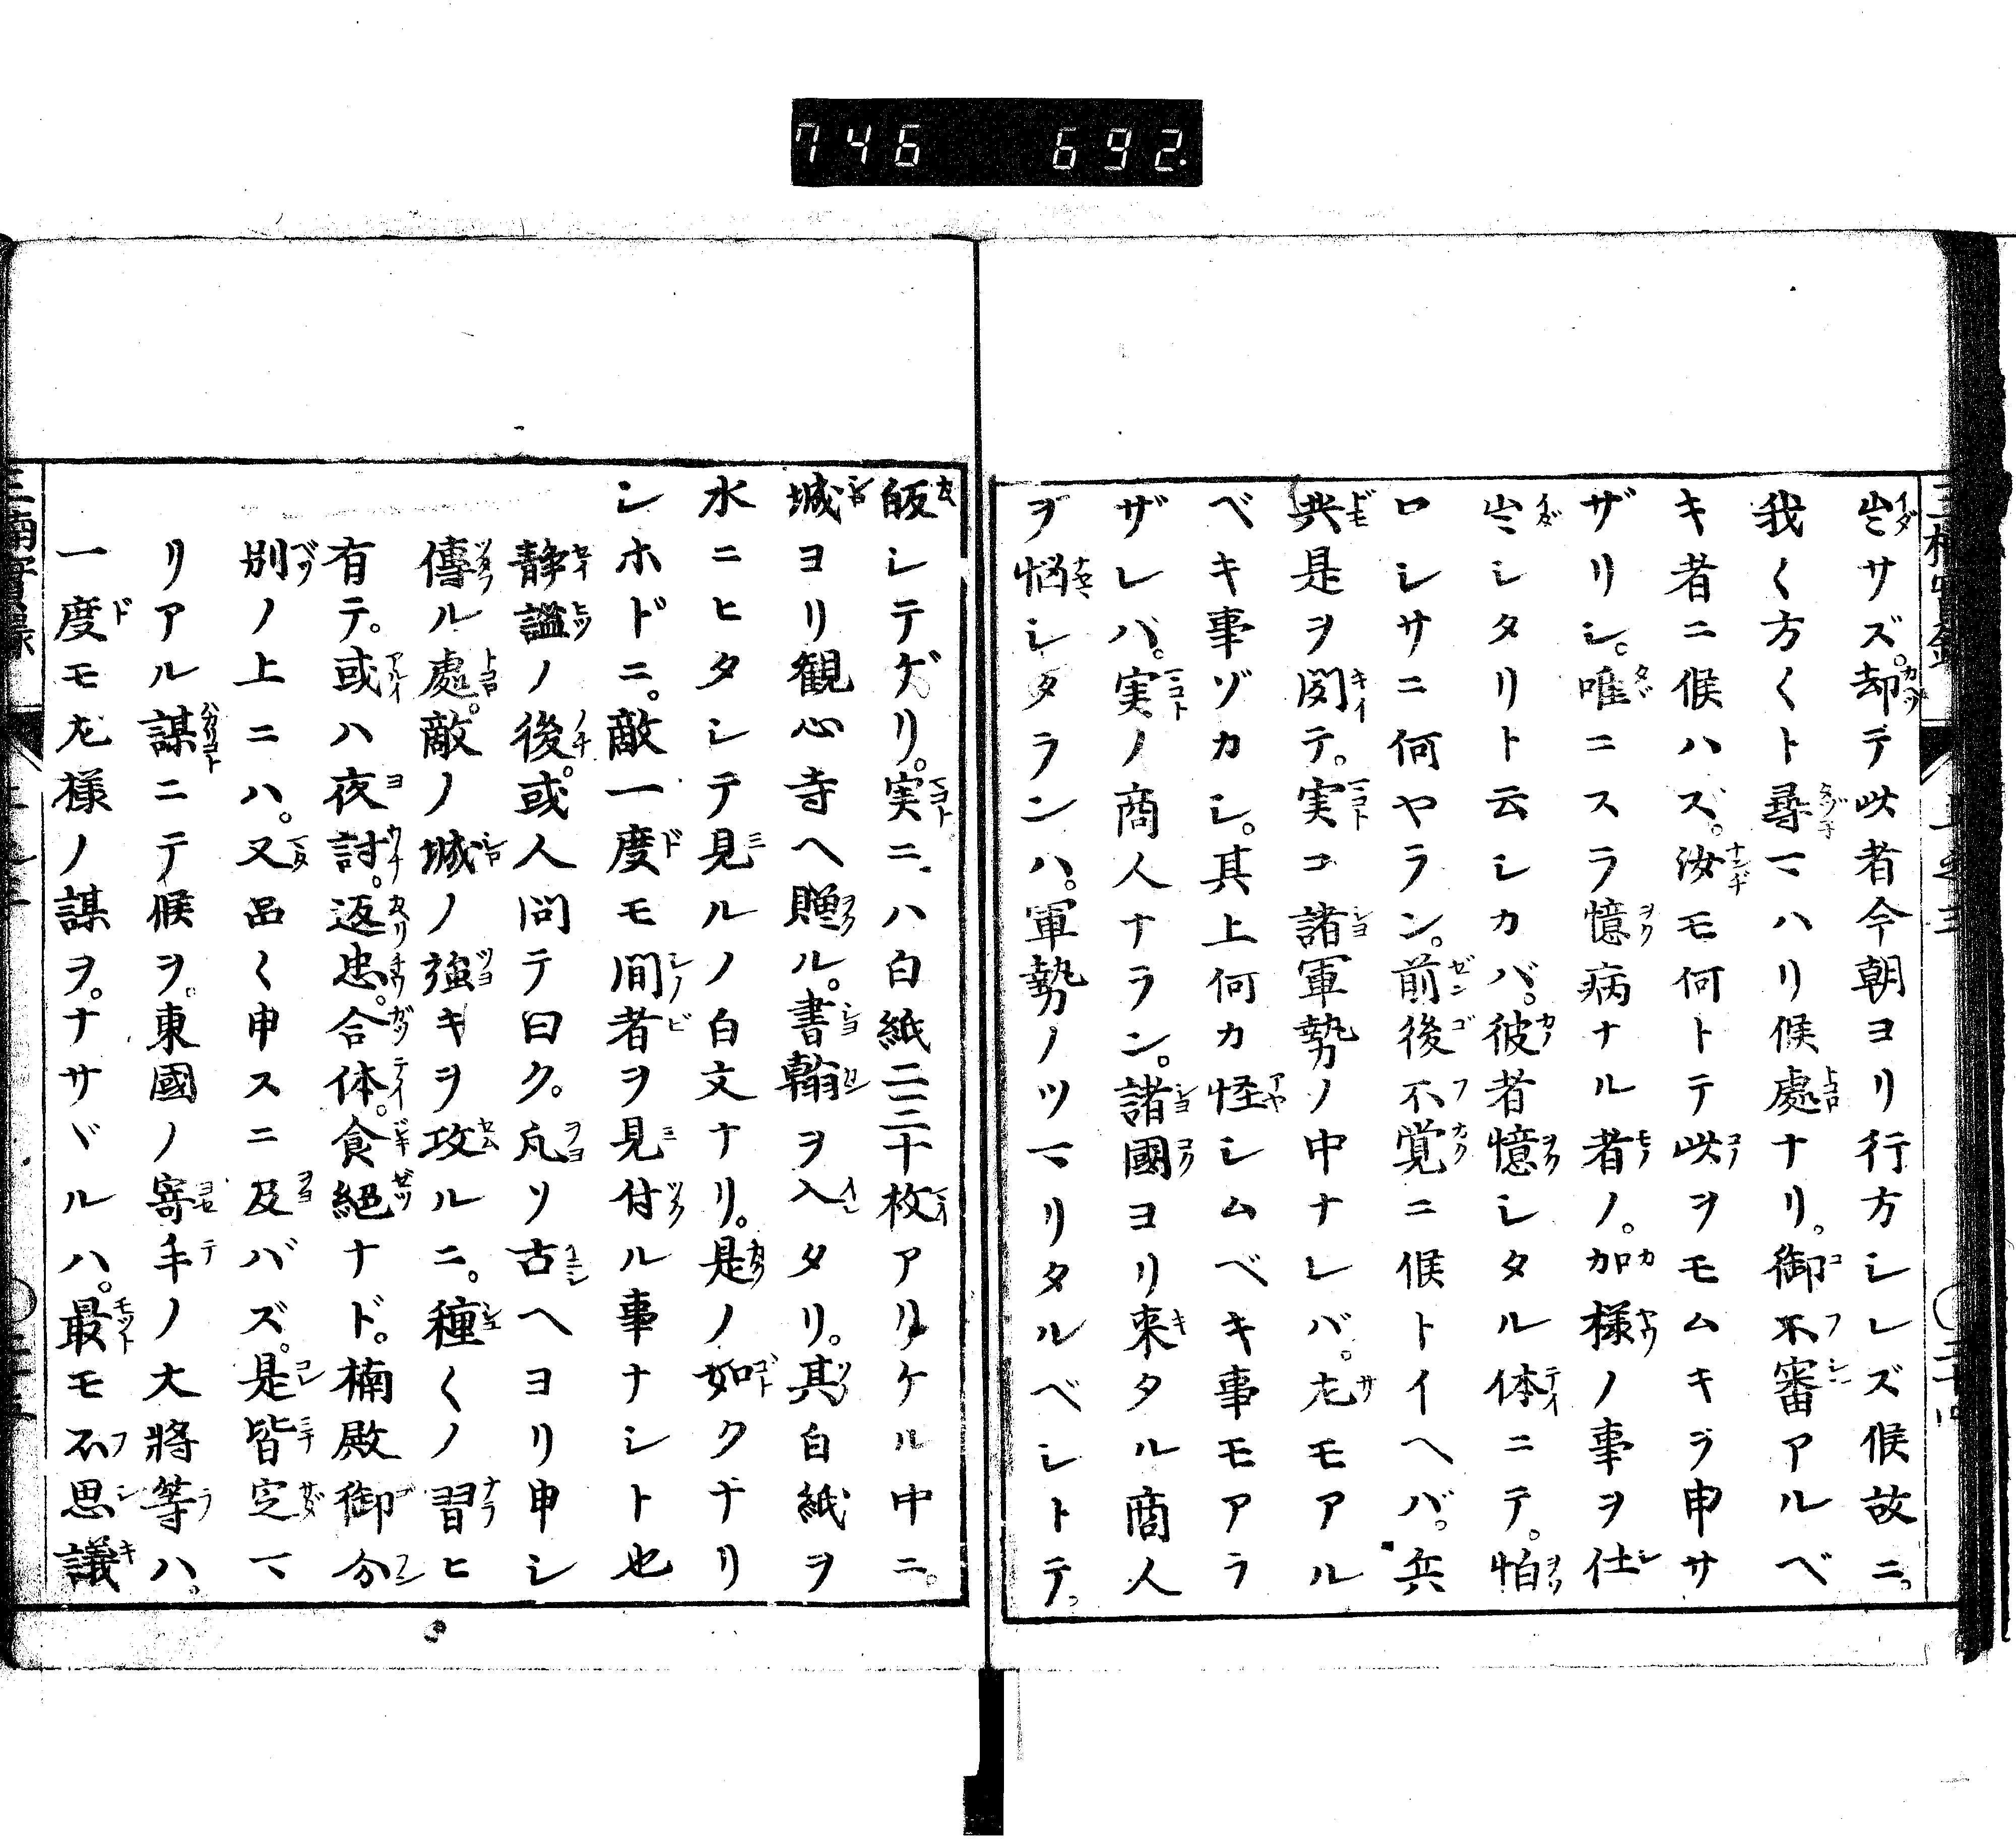 746 692.
出サズ。却テ此者今朝ヨリ行方シレズ候故ニ。
我〱方〱ト尋マハリ候處ナリ。御不審アルベ
キ者ニ候ハズ。汝モ何トテ此ヲモムキヲ申サ
ザリシ。唯ニスラ憶病ナル者ノ。加様ノ事ヲ仕
出シタリト云シカバ。彼者憶シタル体ニテ。怕
ロシサニ何ヤラン。前後不覚ニ候トイヘバ。兵
共是ヲ聞テ。実コ諸軍勢ノ中ナレバ。左モアル
ベキ事ゾカシ。其上何カ怪シムベキ事モアラ
ザレバ。実ノ商人ナラン。諸國ヨリ来タル商人
ヲ悩シタランハ。軍勢ノツマリタルベシトテ。
皈シテゲリ。実ニハ白紙二三十枚アリケル中ニ。
城ヨリ観心寺ヘ贈ル。書翰ヲ入タリ。其白紙ヲ
水ニヒタシテ見ルノ白文ナリ。是ノ如クナリ
シホドニ。敵一度モ間者ヲ見付ル事ナシト也
静謐ノ後。或人問テ曰ク。凡ソ古ヘヨリ申シ
傳ル處。敵ノ城ノ強キヲ攻ルニ。種〱ノ習ヒ
有テ。或ハ夜討。返忠。合体。食絕ナド。楠殿御分
別ノ上ニハ。又品〱申スニ及バズ。是皆定マ
リアル謀ニテ候ヲ。東國ノ寄手ノ大將等ハ。
一度モ左様ノ謀ヲ。ナサヾルハ。最モ不思議